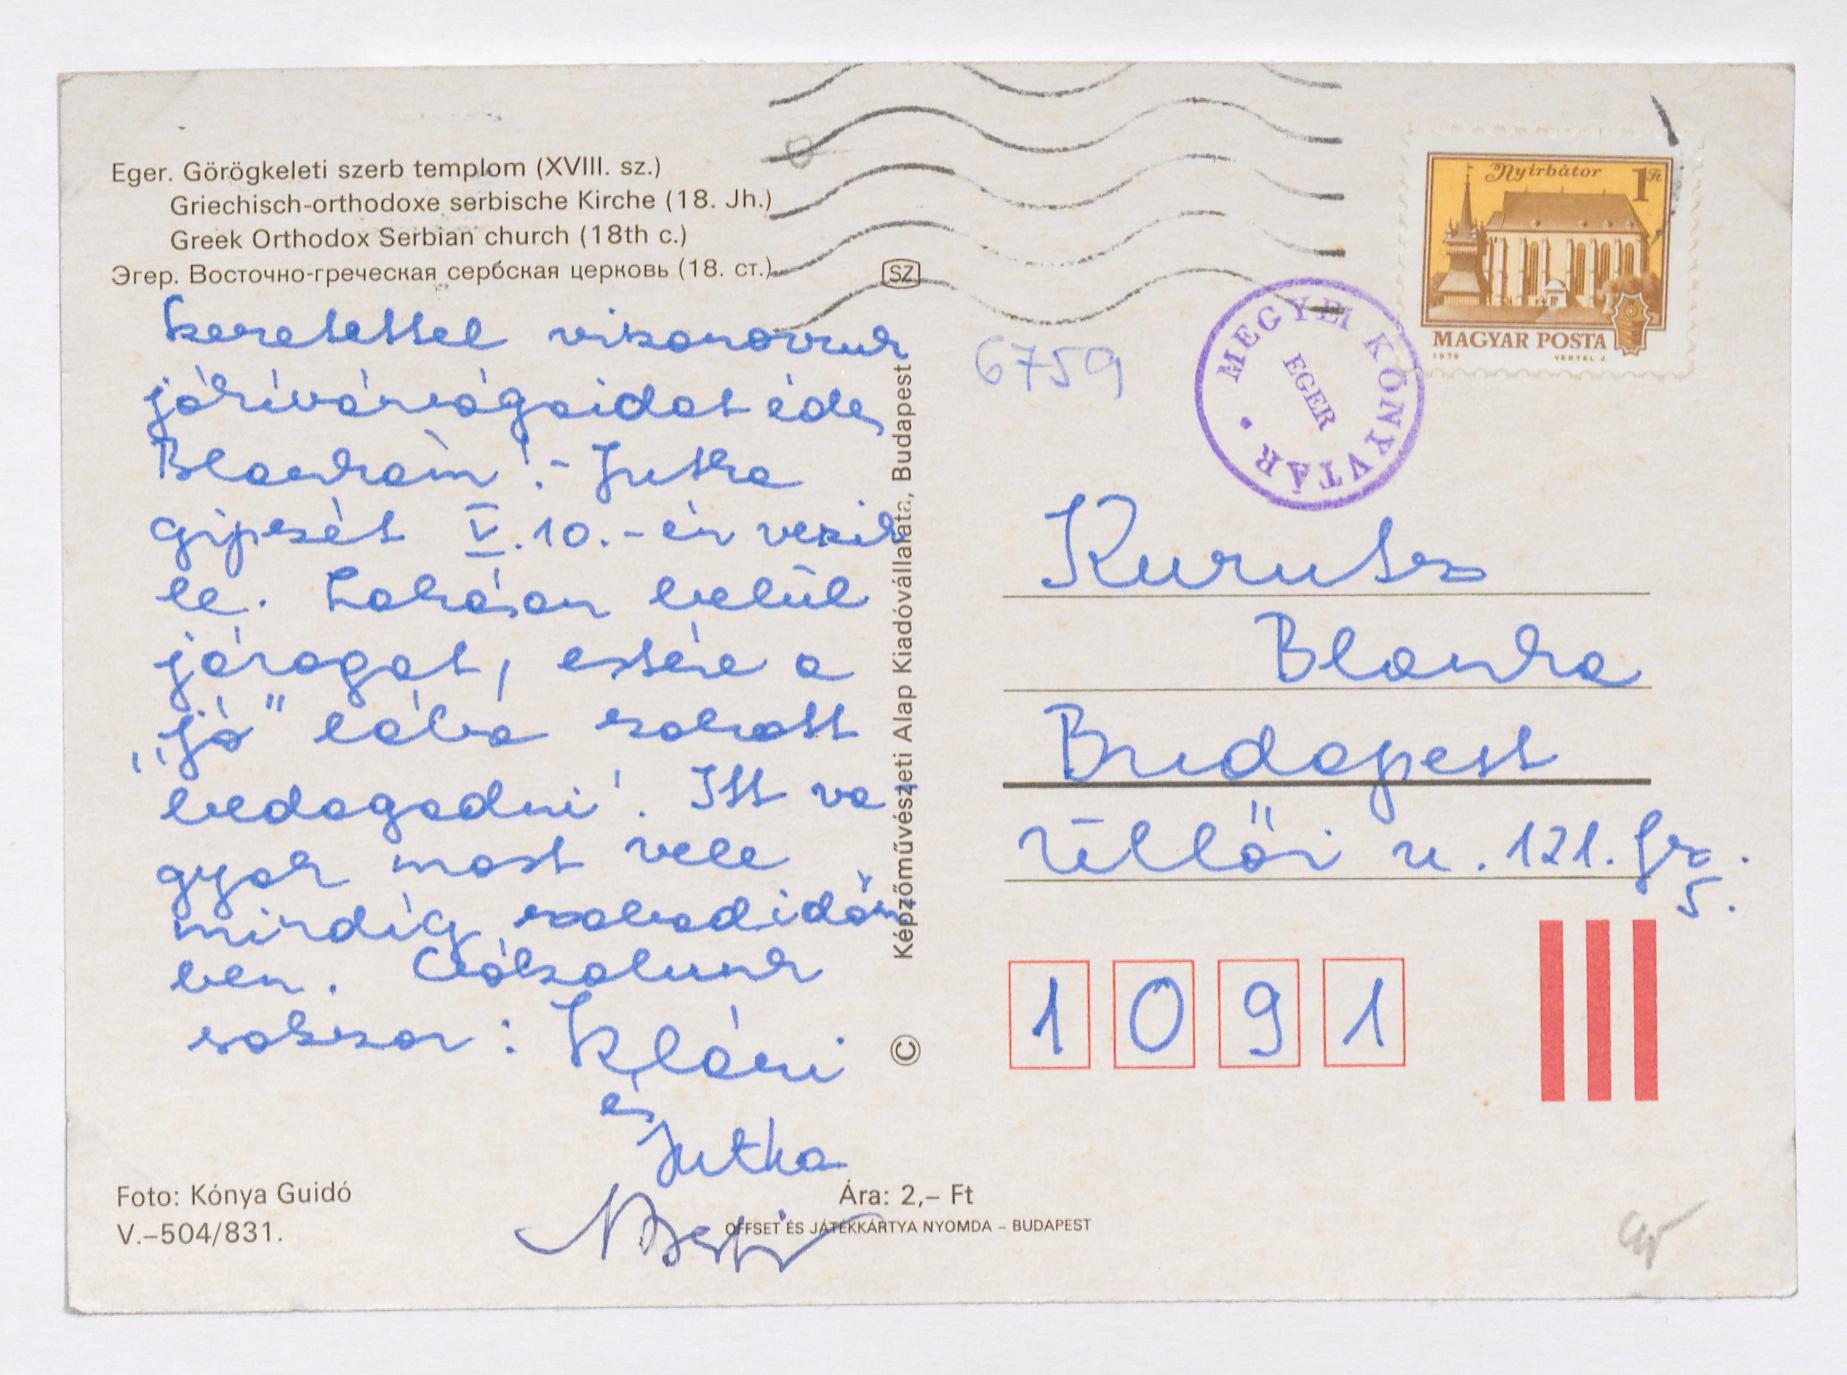 Eger. Görögkeleti szerb templom (XVIII. sz.)
Griechisch-orthodoxe serbische Kirche (18. Jh.)
Greek Orthodox Serbian church (18th c.)
Эгер. Восточно-греческая сербская церковь (18. ст.)
SZ
Szeretettel viszonozzuk
jókívánságaidat édes
Blankám! - Jutka
gipszét V. 10.-én veszik
le. Lakáson belül
járogat, estére a
„jó" lába szokott
bedagadni! Itt va
gyok most vele
mindíg szabadidőm
ben. Csókolunk
sokszor: Klári
és
Jutka
Foto: Kónya Guidó
V.–504/831.
Ára: 2,– Ft
OFFSET ÉS JÁTÉKKÁRTYA NYOMDA – BUDAPEST
© Képzőművészeti Alap Kiadóvállalata, Budapest
6759
MEGYEI KÖNYVTÁR
EGER
Nyírbátor 1 Ft
MAGYAR POSTA
1979 VERTEL J.
Kurutz
Blanka
Budapest
Üllői u. 121. fsz.
5.
1091